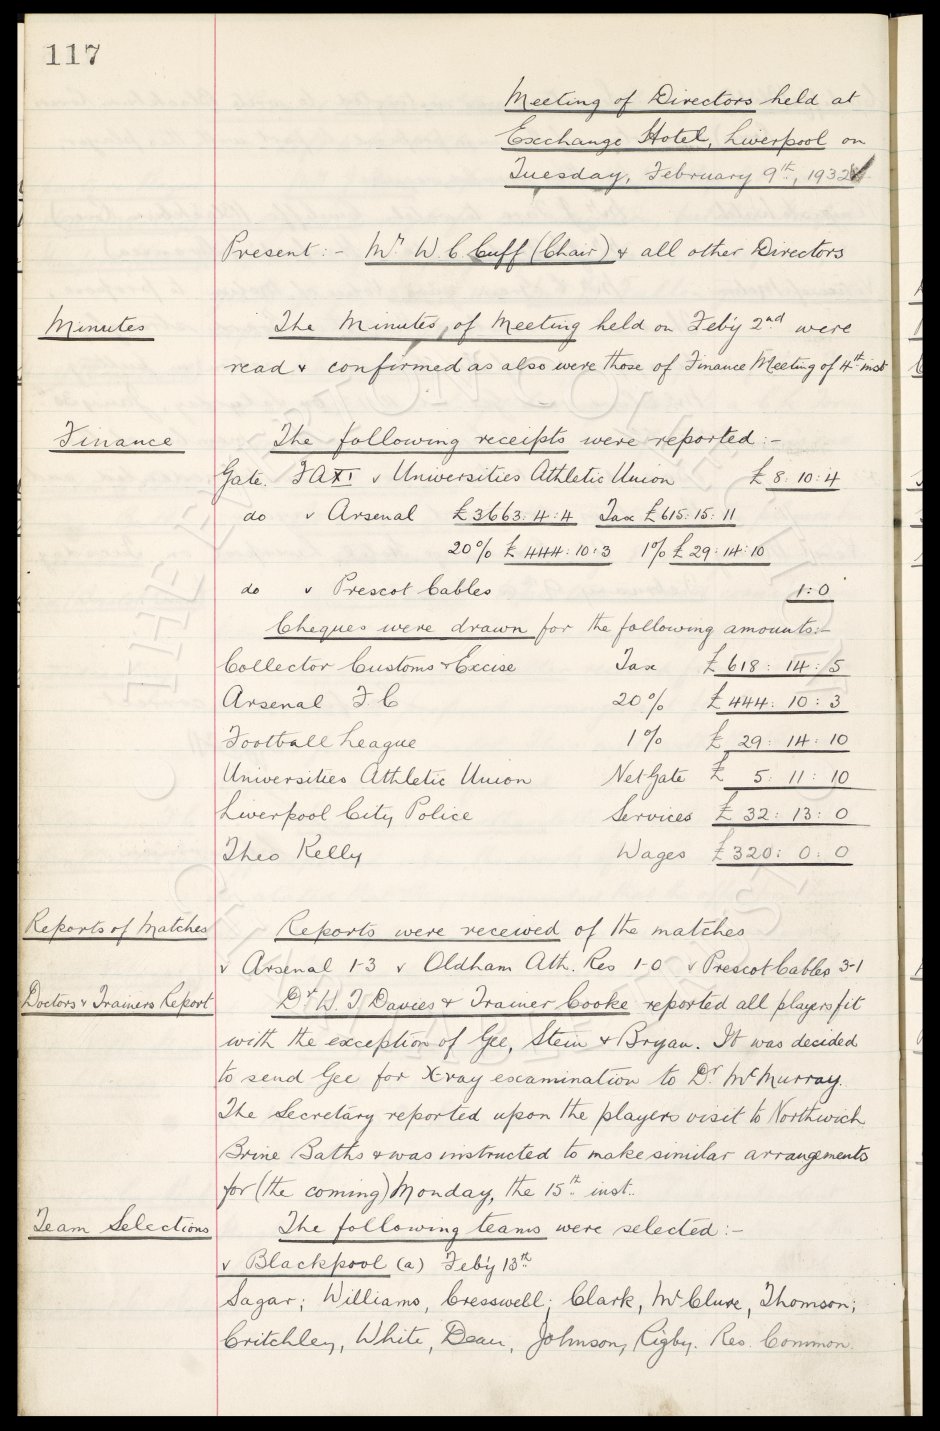 117
Meeting of Directors held at
Exchange Hotel, Liverpool on
Tuesday, February 9th, 1932
Present:- Mr. W. C. Cuff (Chair) & all other Directors
Minutes
The Minutes of Meeting held on Feb'y 2nd were
read & confirmed as also were those of Finance Meeting of 4th inst
Finance
The following receipts were reported:-
Gate. FAXI v Universities Athletic Union £8:10:4
do v Arsenal £3663:4:4 Tax £615:15:11
20% £444:10:3 1% £29:14:10
do v Prescot Cables 1:0
Cheques were drawn for the following amounts:-
Collector Customs & Excise Tax £618:14:5
Arsenal F C 20% £444:10:3
Football League 1% £29:14:10
Universities Athletic Union Net Gate £5:11:10
Liverpool City Police Services £32:13:0
Theo Kelly Wages £320:0:0
Reports of Matches
Reports were received of the matches
v Arsenal 1-3 v Oldham Ath. Res 1-0 v Prescot Cables 3-1
Doctors & Trainers Report
Dr. W. J. Davies & Trainer Cooke reported all players fit
with the exception of Gee, Stein & Bryan. It was decided
to send Gee for X-ray examination to Dr. McMurray.
The Secretary reported upon the players visit to Northwich
Brine Baths & was instructed to make similar arrangements
for (the coming) Monday, the 15th inst..
Team Selections
The following teams were selected:-
v Blackpool (a) Feb'y 13th
Sagar; Williams, Cresswell; Clark, McClure, Thomson;
Critchley, White, Dean, Johnson, Rigby. Res. Common.